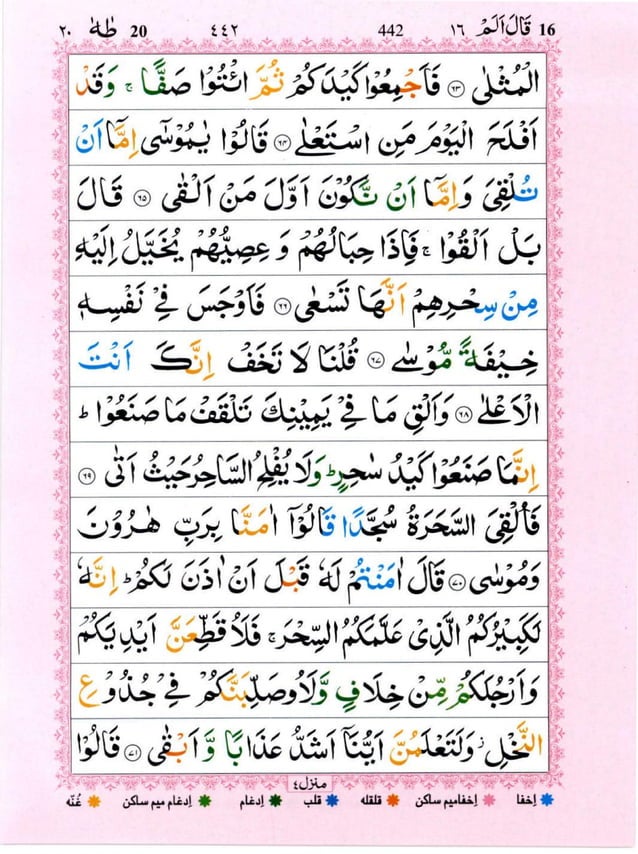 ٢٠ طٰهٰ 20 ٤٤٢ 442 قَالَ اَلَمْ ١٦ 16
الْمُثْلٰى ﴿۶۳﴾ فَاَجْمِعُوْا كَيْدَكُمْ ثُمَّ ائْتُوْا صَفًّا ۚ وَقَدْ
اَفْلَحَ الْيَوْمَ مَنِ اسْتَعْلٰى ﴿۶۴﴾ قَالُوْا يٰمُوْسٰٓى اِمَّآ اَنْ
تُلْقِىَ وَاِمَّآ اَنْ نَّكُوْنَ اَوَّلَ مَنْ اَلْقٰى ﴿۶۵﴾ قَالَ
بَلْ اَلْقُوْا ۚ فَاِذَا حِبَالُهُمْ وَ عِصِيُّهُمْ يُخَيَّلُ اِلَيْهِ
مِنْ سِحْرِهِمْ اَنَّهَا تَسْعٰى ﴿۶۶﴾ فَاَوْجَسَ فِىْ نَفْسِهٖ
خِيْفَةً مُّوْسٰى ﴿۶۷﴾ قُلْنَا لَا تَخَفْ اِنَّكَ اَنْتَ
الْاَعْلٰى ﴿۶۸﴾ وَاَلْقِ مَا فِىْ يَمِيْنِكَ تَلْقَفْ مَا صَنَعُوْا ؕ
اِنَّمَا صَنَعُوْا كَيْدُ سٰحِرٍ ؕ وَلَا يُفْلِحُ السَّاحِرُ حَيْثُ اَتٰى ﴿۶۹﴾
فَاُلْقِىَ السَّحَرَةُ سُجَّدًا قَالُوْٓا اٰمَنَّا بِرَبِّ هٰرُوْنَ
وَمُوْسٰى ﴿۷۰﴾ قَالَ اٰمَنْتُمْ لَهٗ قَبْلَ اَنْ اٰذَنَ لَكُمْ ؕ اِنَّهٗ
لَكَبِيْرُكُمُ الَّذِىْ عَلَّمَكُمُ السِّحْرَ ۚ فَلَاُقَطِّعَنَّ اَيْدِيَكُمْ
وَاَرْجُلَكُمْ مِّنْ خِلَافٍ وَّلَاُوصَلِّبَنَّكُمْ فِىْ جُذُوْعِ
النَّخْلِ ؗ وَلَتَعْلَمُنَّ اَيُّنَآ اَشَدُّ عَذَابًا وَّ اَبْقٰى ﴿۷۱﴾ قَالُوْا
منزل ٤
اِخفا اِخفامیم ساکن قلقله قلب اِدغام اِدغام میم ساکن غُنّه